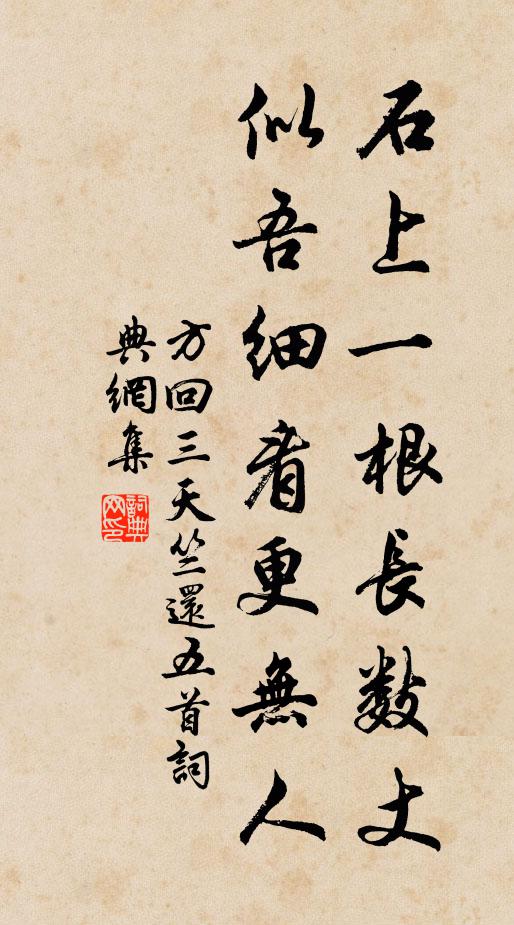 石上一根長数丈
似吾細看更無人
方回三天竺還五首詞
典網集
詞典网印